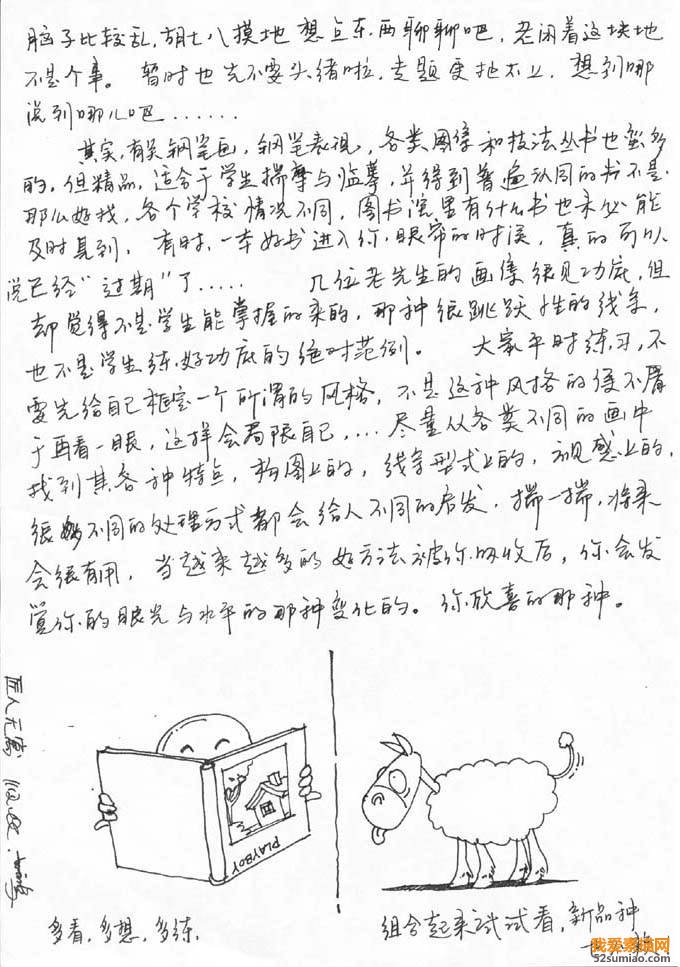 脑子比较乱，胡七八摸地想点东西聊聊吧，老闲着这块地
不是个事。暂时也先不要头绪啦，专题更扯不上，想到哪
说到哪儿吧......
其实，有关钢笔画，钢笔表现，各类图集和技法丛书也蛮多
的，但精品，适合于学生揣摩与临摹，并得到普遍认同的书不是
那么好找，各个学校情况不同，图书馆里有什么书也未必能
及时见到，有时，一本好书进入你眼帘的时候，真的可以
说已经“过期”了..... 几位老先生的画集很见功底，但
却觉得不是学生能掌握的来的，那种很跳跃性的线条，
也不是学生练好功底的绝对范例。 大家平时练习，不
要先给自己框定一个所谓的风格，不是这种风格的便不屑
于再看一眼，这样会局限自己，....尽量从各类不同的画中
找到其各种特点，构图上的，线条型式上的，视感上的，
很多不同的处理方式都会给人不同的启发，揣一揣，将来
会很有用，当越来越多的好方法被你吸收后，你会发
觉你的眼光与水平的那种变化的。你欣喜的那种。
匠人无寓
PLAYBOY
多看，多想，多练，
组合起来试试看，新品种
我爱素描网
52sumiao.com